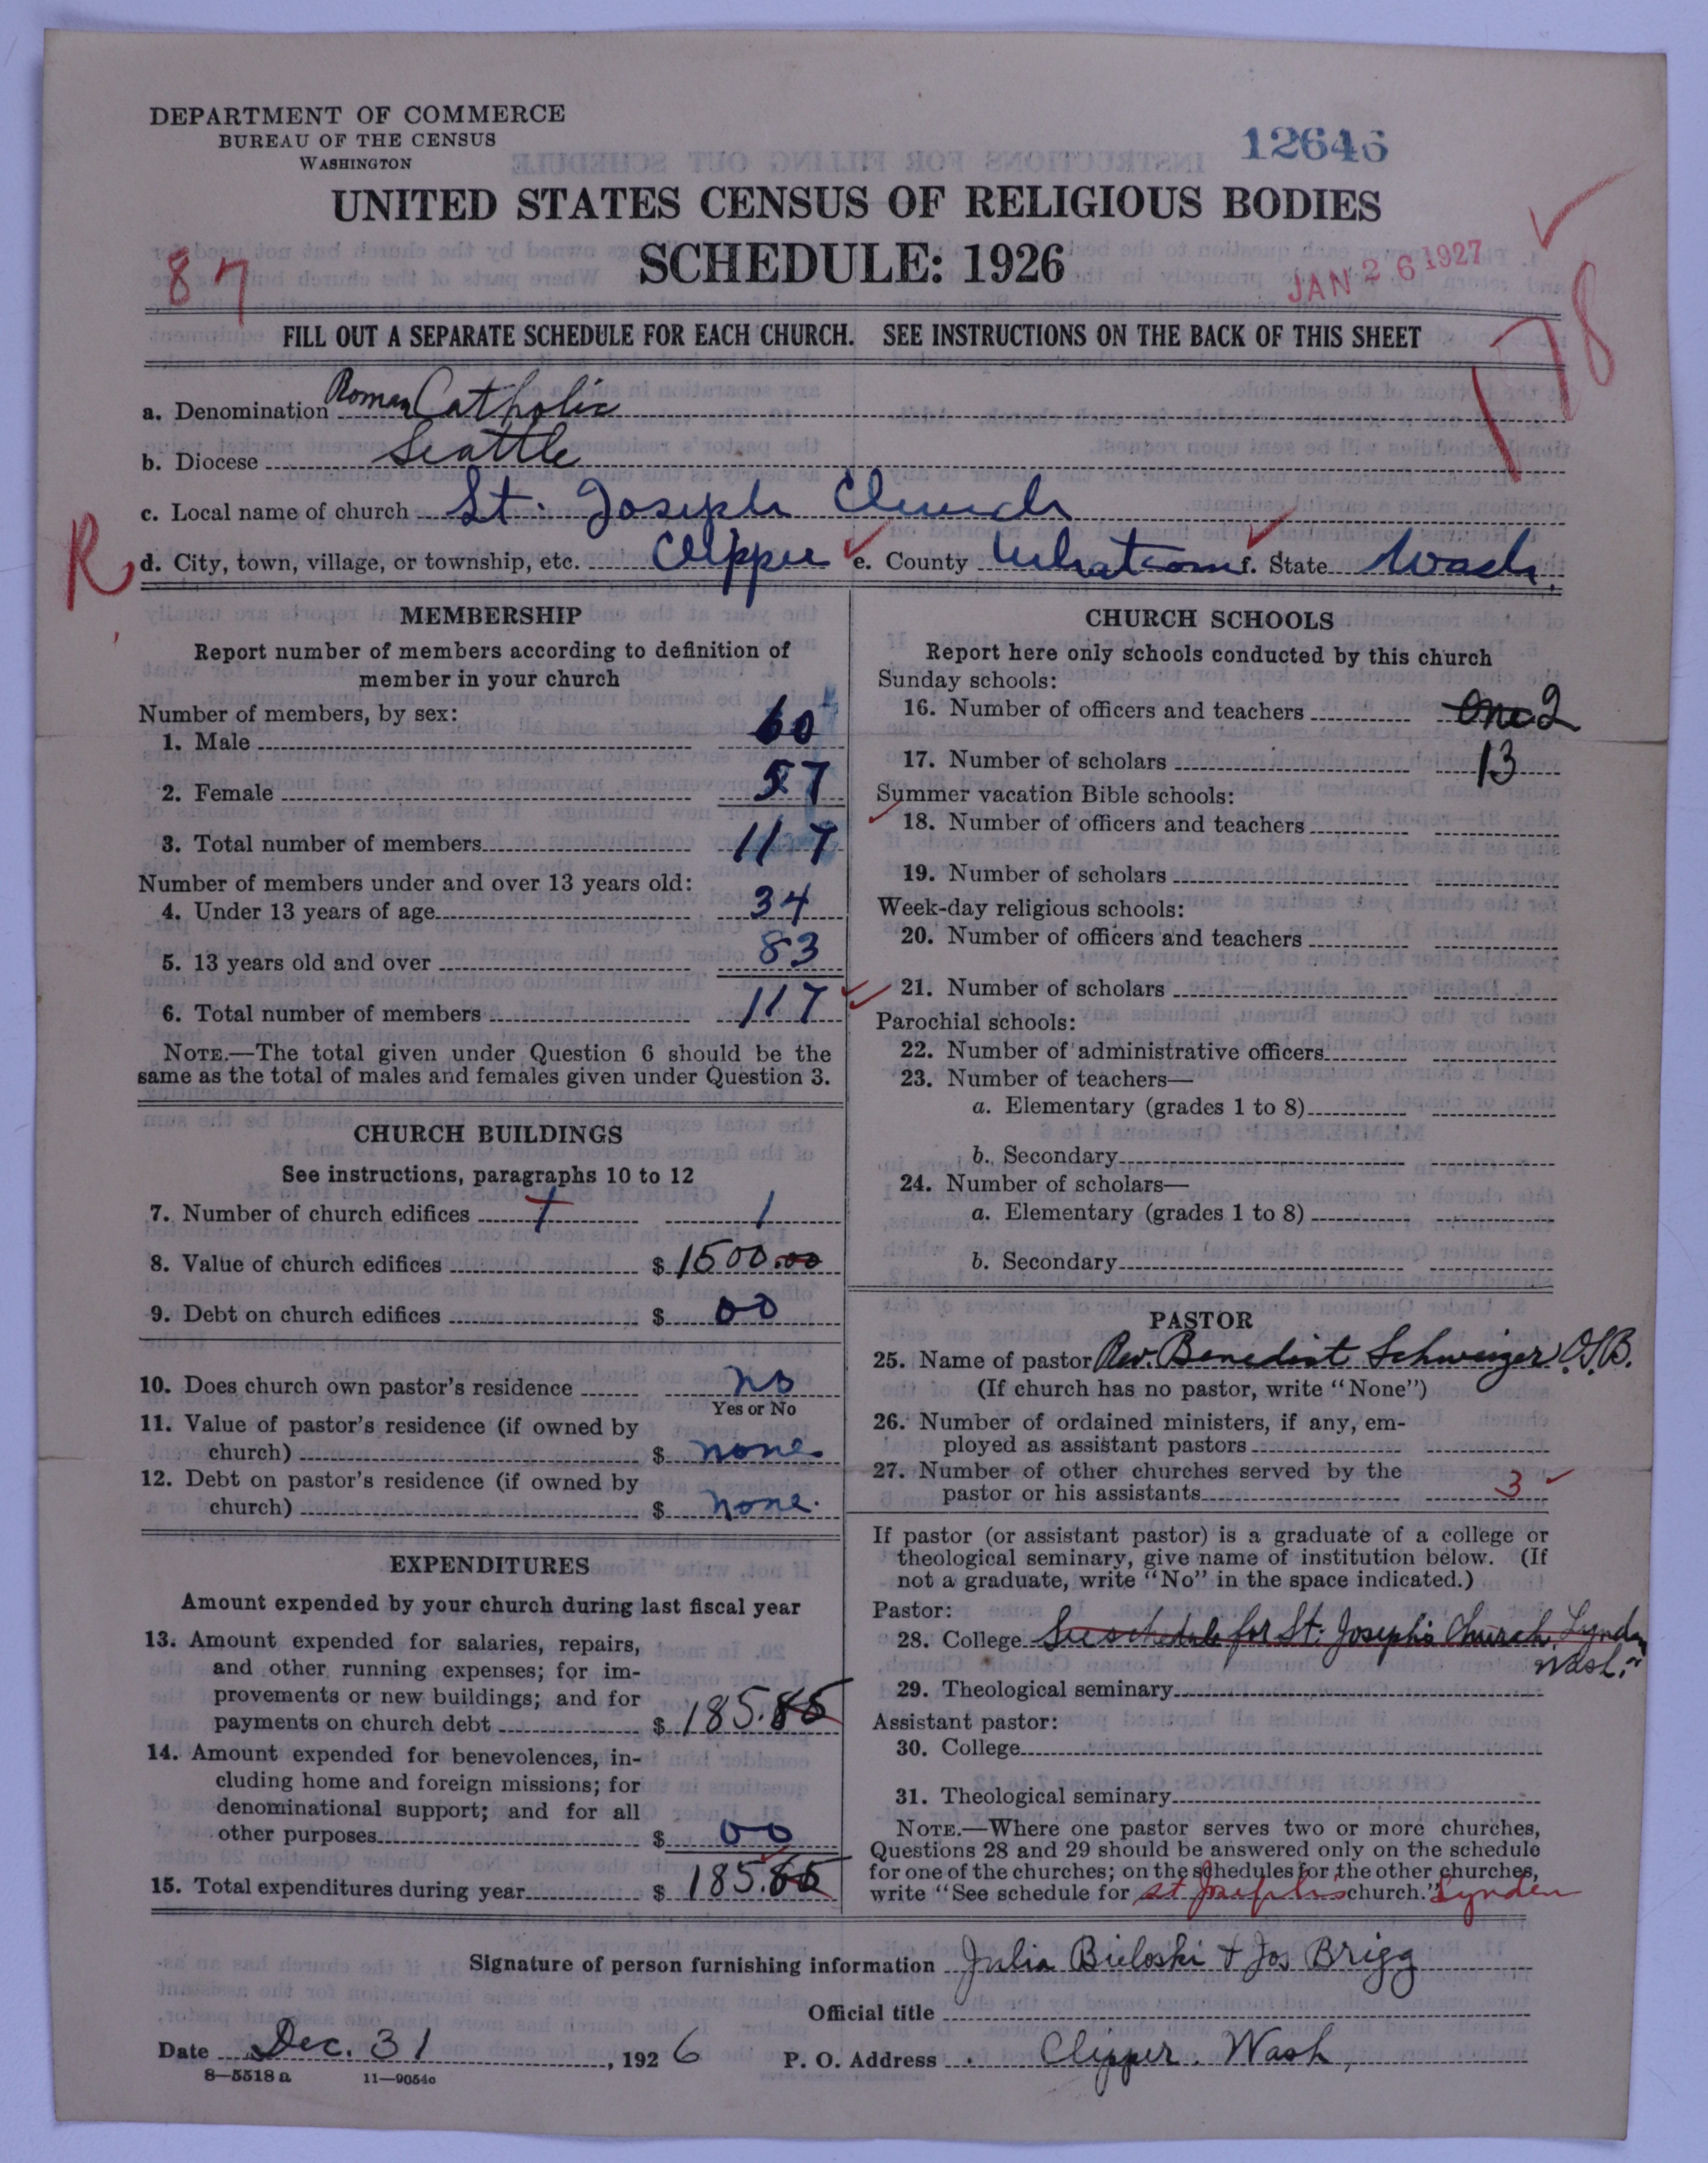 DEPARTMENT OF COMMERCE
BUREAU OF THE CENSUS
WASHINGTON
12646
UNITED STATES CENSUS OF RELIGIOUS BODIES
SCHEDULE: 1926
87
JAN 26 1927
178
FILL OUT A SEPARATE SCHEDULE FOR EACH CHURCH. SEE INSTRUCTIONS ON THE BACK OF THIS SHEET
a. Denomination Roman Catholic
b. Diocese Seattle
c. Local name of church St. Joseph Church
R
d. City, town, village, or township, etc. Clipper e. County Whatcom f. State Wash.
MEMBERSHIP
Report number of members according to definition of
member in your church
Number of members, by sex:
1. Male 60
2. Female 57
3. Total number of members 117
Number of members under and over 13 years old:
4. Under 13 years of age 34
5. 13 years old and over 83
6. Total number of members 117
NOTE.—The total given under Question 6 should be the
same as the total of males and females given under Question 3.
CHURCH BUILDINGS
See instructions, paragraphs 10 to 12
7. Number of church edifices 1 1
8. Value of church edifices $ 1500.00
9. Debt on church edifices $ 00
10. Does church own pastor's residence no
Yes or No
11. Value of pastor's residence (if owned by
church) $ none
12. Debt on pastor's residence (if owned by
church) $ none.
EXPENDITURES
Amount expended by your church during last fiscal year
13. Amount expended for salaries, repairs,
and other running expenses; for im-
provements or new buildings; and for
payments on church debt $ 185.85
14. Amount expended for benevolences, in-
cluding home and foreign missions; for
denominational support; and for all
other purposes $ 00
15. Total expenditures during year $ 185.85
CHURCH SCHOOLS
Report here only schools conducted by this church
Sunday schools:
16. Number of officers and teachers One 2
17. Number of scholars 13
Summer vacation Bible schools:
18. Number of officers and teachers
19. Number of scholars
Week-day religious schools:
20. Number of officers and teachers
21. Number of scholars
Parochial schools:
22. Number of administrative officers
23. Number of teachers—
a. Elementary (grades 1 to 8)
b. Secondary
24. Number of scholars—
a. Elementary (grades 1 to 8)
b. Secondary
PASTOR
25. Name of pastor Rev. Benedict Schweizer O.S.B.
(If church has no pastor, write "None")
26. Number of ordained ministers, if any, em-
ployed as assistant pastors
27. Number of other churches served by the
pastor or his assistants 3
If pastor (or assistant pastor) is a graduate of a college or
theological seminary, give name of institution below. (If
not a graduate, write "No" in the space indicated.)
Pastor:
28. College See schedule for St. Joseph's Church, Lynden
Wash."
29. Theological seminary
Assistant pastor:
30. College
31. Theological seminary
NOTE.—Where one pastor serves two or more churches,
Questions 28 and 29 should be answered only on the schedule
for one of the churches; on the schedules for the other churches,
write "See schedule for St Joseph's church." Lynden
Signature of person furnishing information Julia Bieloski + Jos Brigg
Official title
Date Dec. 31, 1926 P. O. Address Clipper. Wash,
8—5518 a 11—9054c